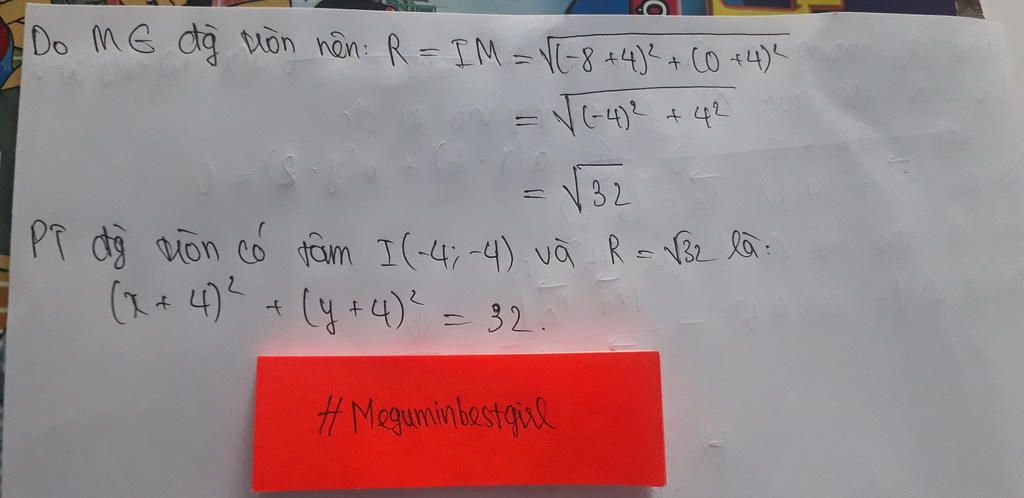 Do M ∈ đg tròn nên: R = IM = √((-8+4)² + (0+4)²)
= √((-4)² + 4²)
= √32
PT đg tròn có tâm I(-4;-4) và R = √32 là:
(x + 4)² + (y + 4)² = 32.
#Meguminbestgirl